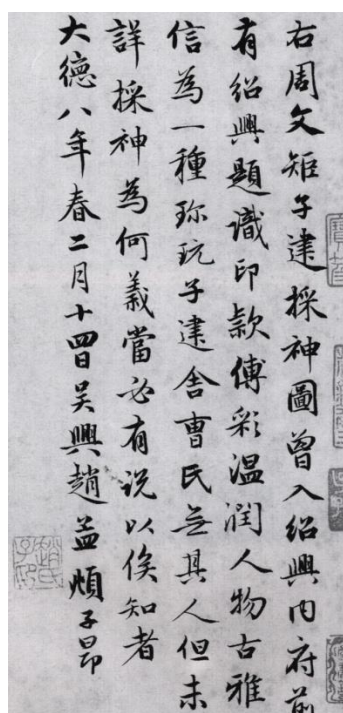 右周文矩子建採神圖曾入紹興內府前
有紹興題識印款傅彩溫潤人物古雅
信為一種珎玩子建舍曹氏無其人但未
詳採神為何義當必有説以俟知者
大德八年春二月十四日吴興趙孟頫子昂
趙氏子昂